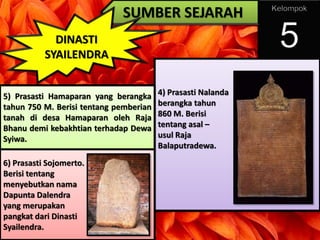 SUMBER SEJARAH
Kelompok
5
DINASTI
SYAILENDRA
5) Prasasti Hamparan yang berangka
tahun 750 M. Berisi tentang pemberian
tanah di desa Hamparan oleh Raja
Bhanu demi kebakhtian terhadap Dewa
Syiwa.
4) Prasasti Nalanda
berangka tahun
860 M. Berisi
tentang asal –
usul Raja
Balaputradewa.
6) Prasasti Sojomerto.
Berisi tentang
menyebutkan nama
Dapunta Dalendra
yang merupakan
pangkat dari Dinasti
Syailendra.